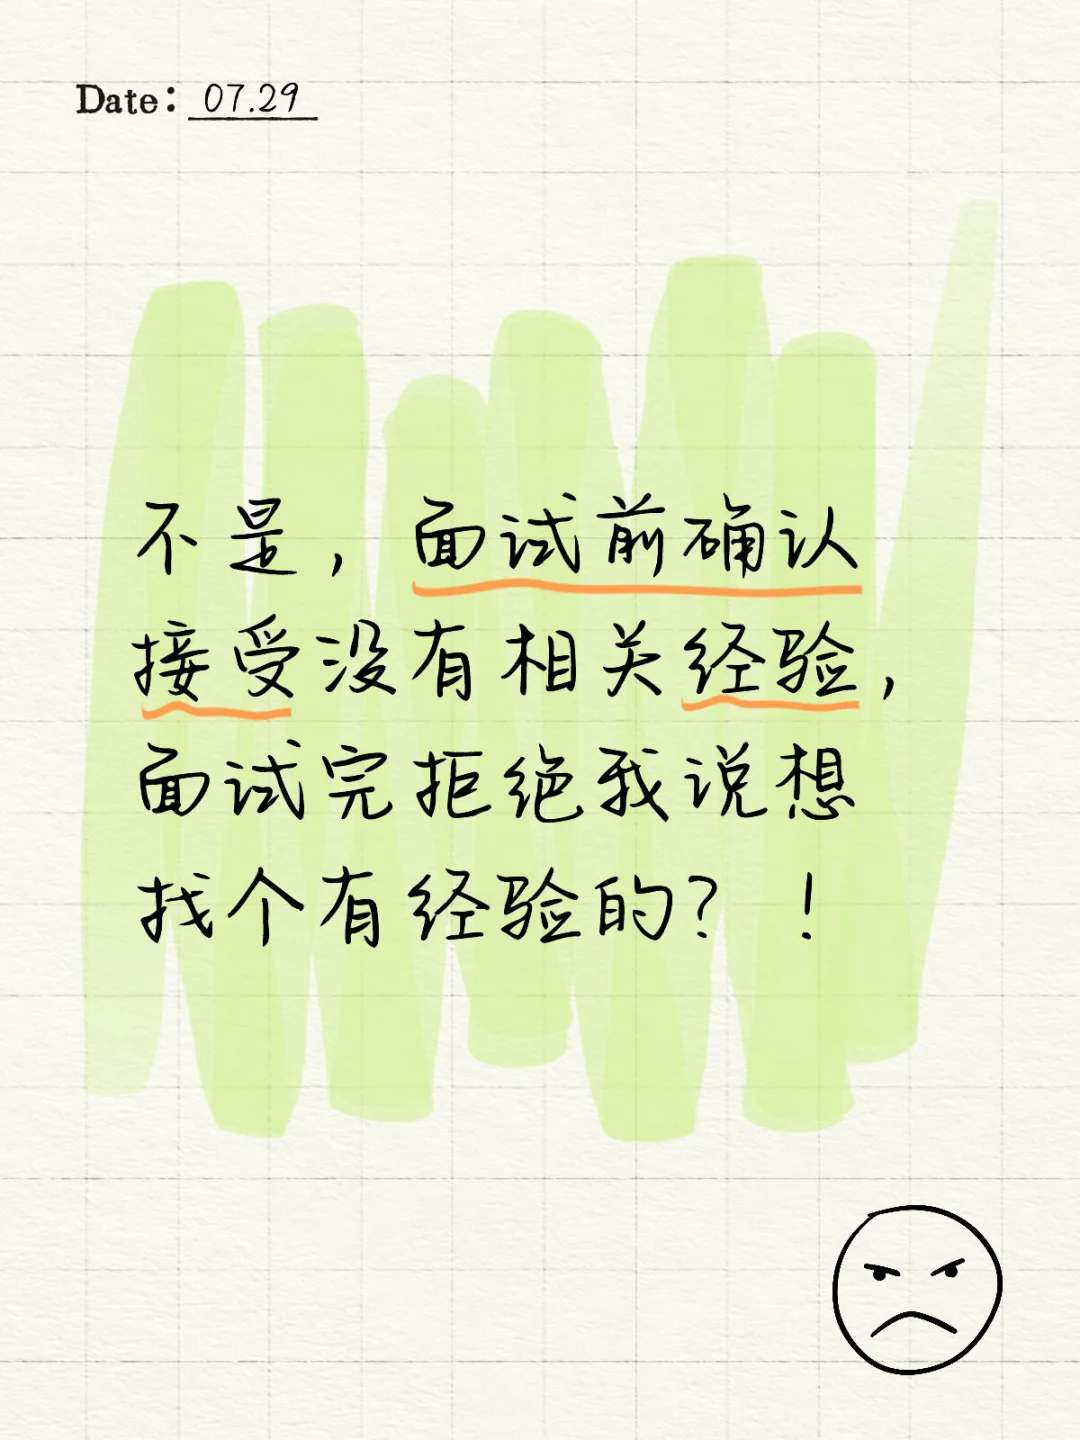 Date: 07.29
不是，面试前确认
接受没有相关经验，
面试完拒绝我说想
找个有经验的？！